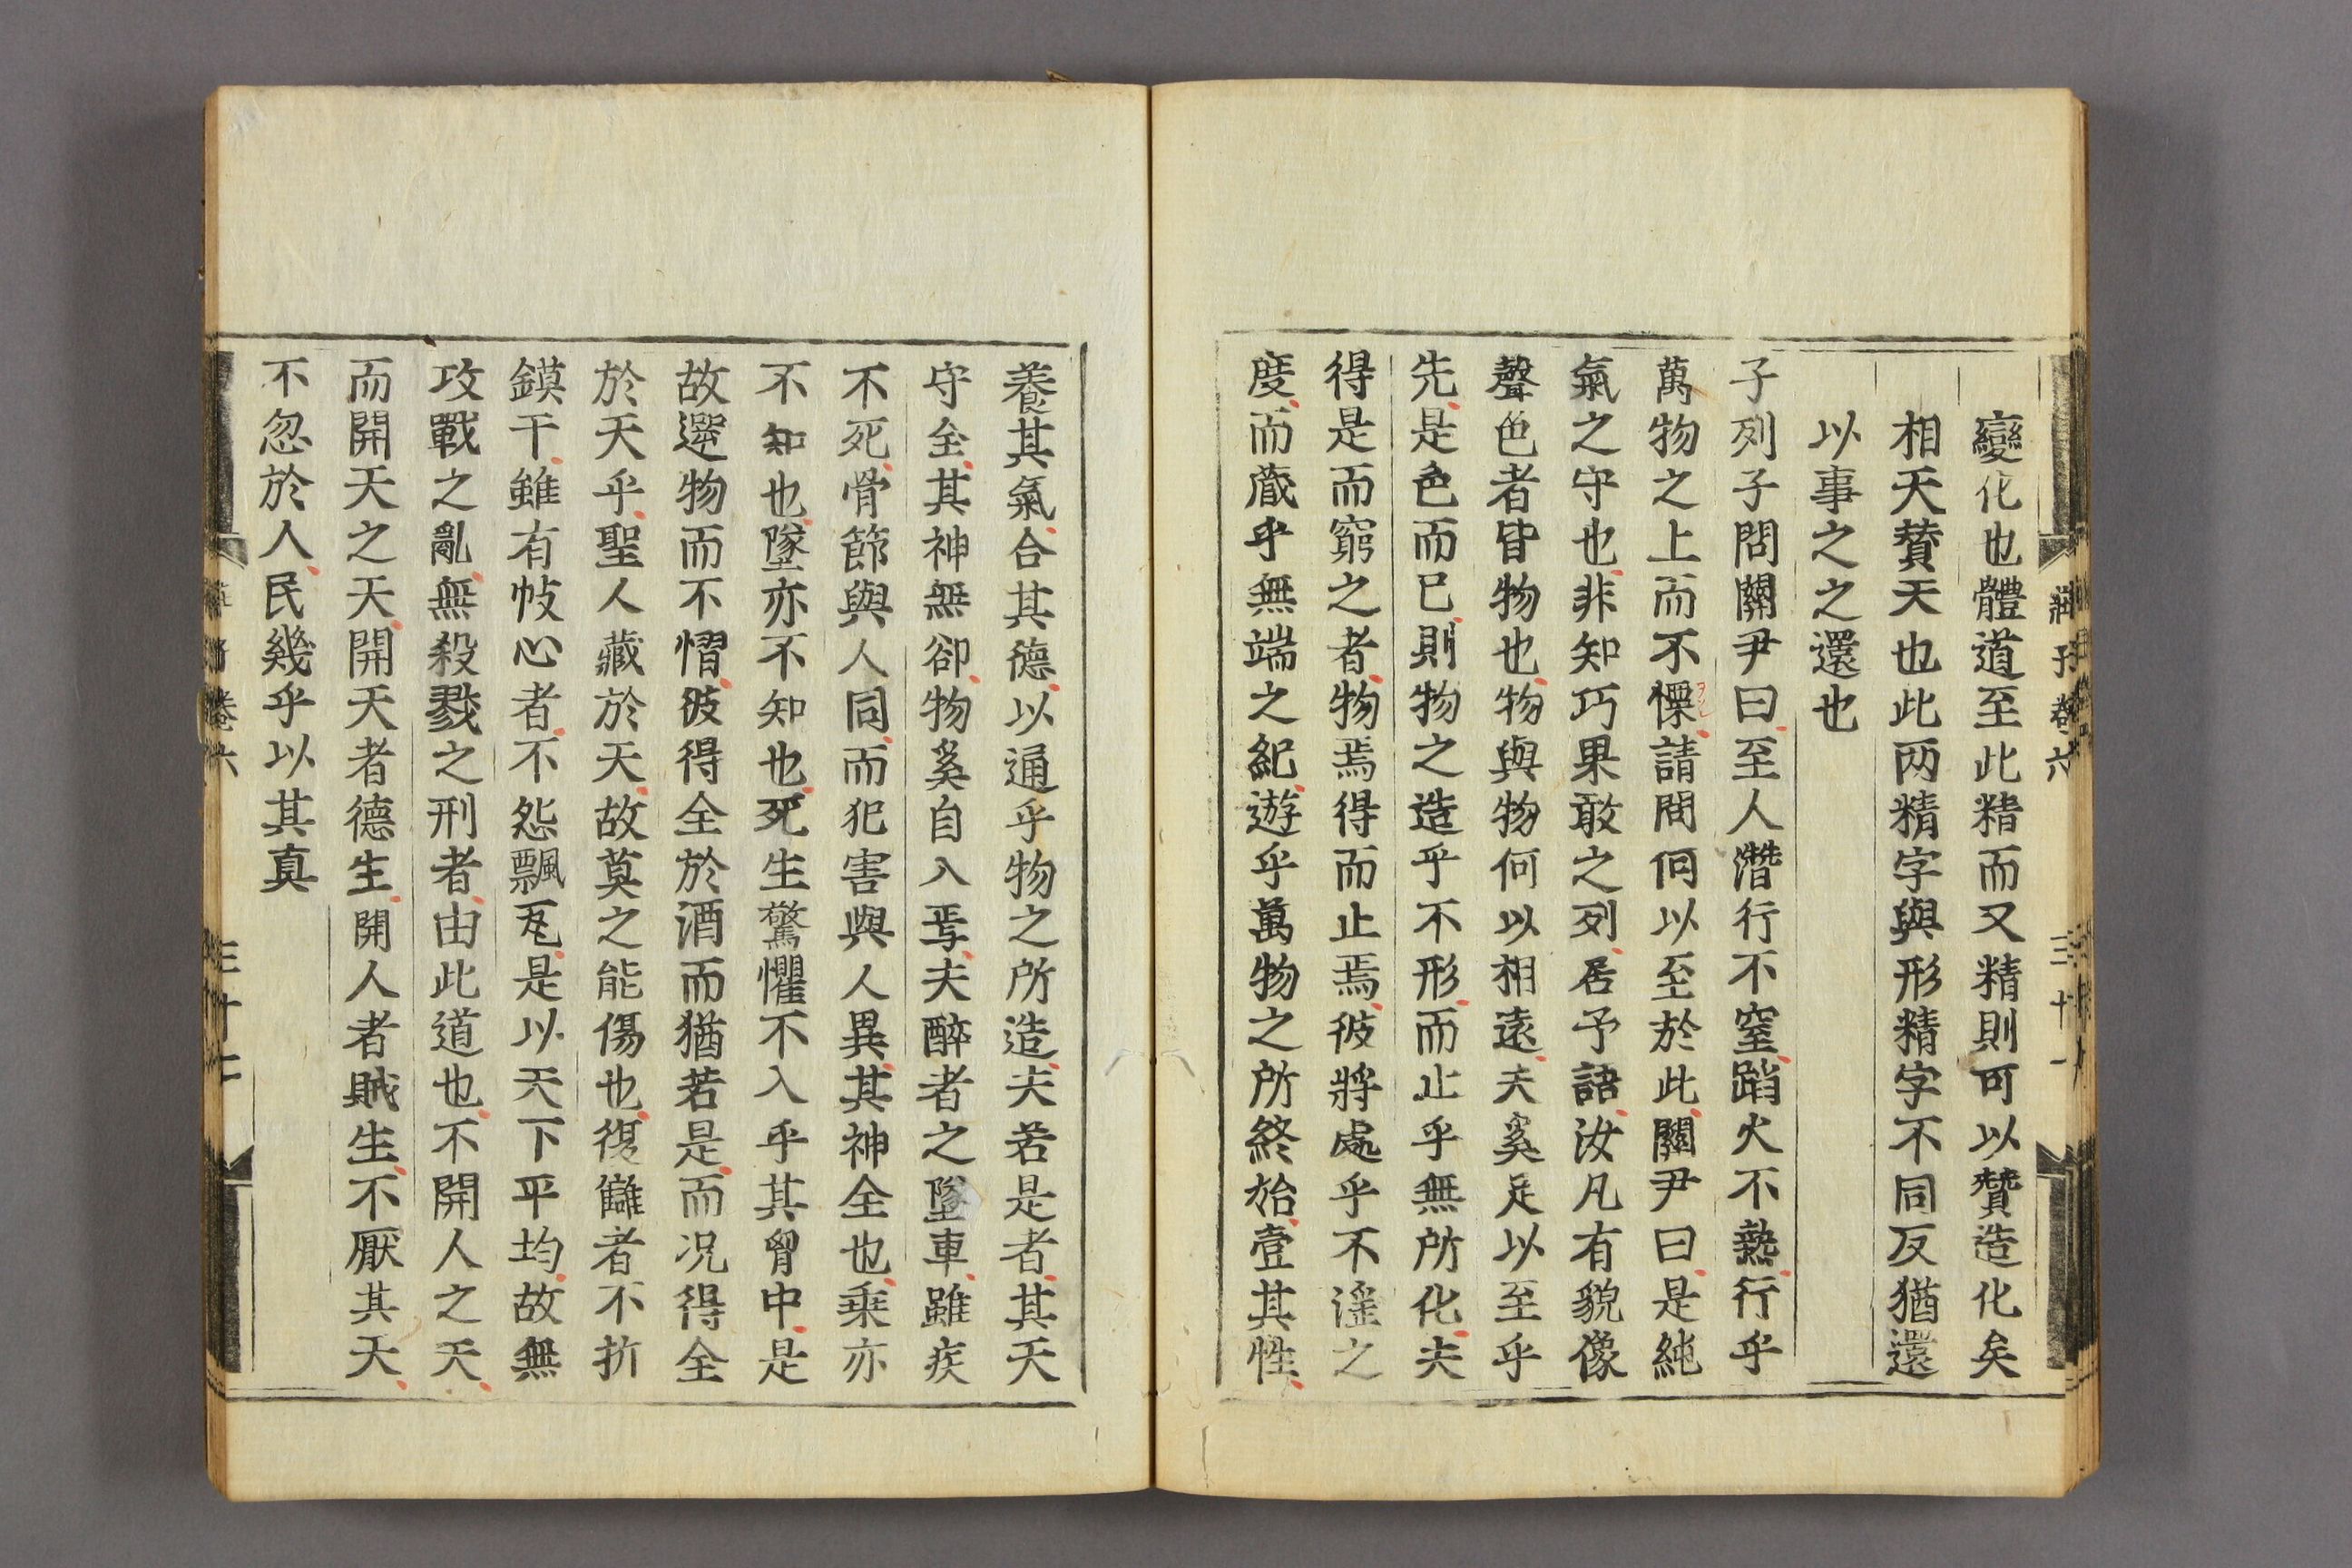 變化也體道至此精而又精則可以贊造化矣
相天贊天也此两精字與形精字不同反猶還
以事之之還也
子列子問關尹曰至人潛行不窒蹈火不熱行乎
萬物之上而不慄請問何以至於此關尹曰是純
氣之守也非知巧果敢之列居予語汝凡有貌像
聲色者皆物也物與物何以相遠夫奚足以至乎
先是色而已則物之造乎不形而止乎無所化夫
得是而窮之者物焉得而止焉彼將處乎不滛之
度而蔵乎無端之紀遊乎萬物之所終始壹其性
養其氣合其德以通乎物之所造夫若是者其天
守全其神無卻物奚自入焉夫醉者之墜車雖疾
不死骨節與人同而犯害與人異其神全也乗亦
不知也墜亦不知也死生驚懼不入乎其胷中是
故遻物而不慴彼得全於酒而猶若是而况得全
於天乎聖人藏於天故莫之能傷也復讎者不折
鏌干雖有忮心者不怨飄瓦是以天下平均故無
攻戰之亂無殺戮之刑者由此道也不開人之天
而開天之天開天者德生開人者賊生不厭其天
不忽於人民幾乎以其真
卷六
三十七